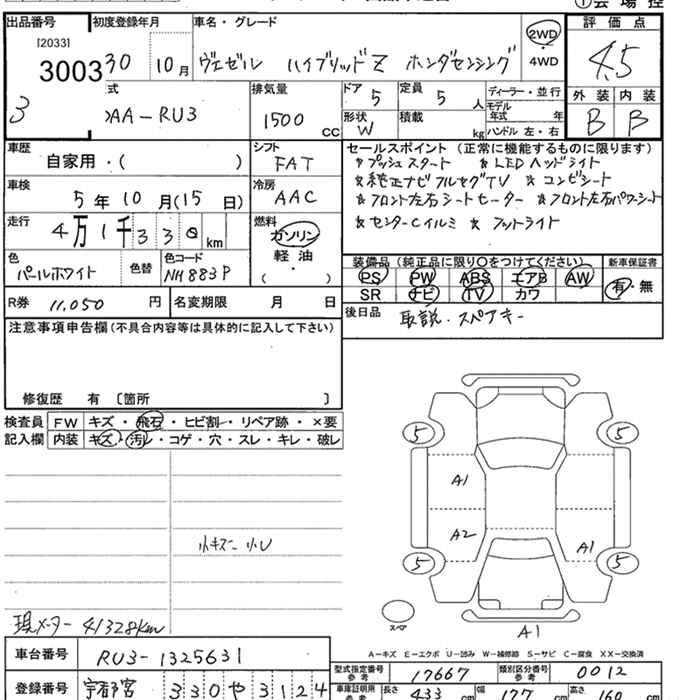 出品番号 初度登録年月 車名・グレード 2WD・4WD 評価点
[2033]
3003 30 10月 ヴェゼル ハイブリッドZ ホンダセンシング 4.5
3 式 AA-RU3 排気量 1500 CC ドア 5 定員 5人 ディーラー・並行 外装 内装
形状 W 積載 kg モデル年式 年 ハンドル 左・右 B B
車歴 自家用・( ) シフト FAT セールスポイント (正常に機能するものに限ります)
☆プッシュスタート ☆LEDヘッドライト
車検 5年10月(15日) 冷房 AAC ☆純正ナビフルセグTV ☆コンビシート
☆フロント左右シートヒーター ☆フロント左右パワーシート
走行 4万1千330km 燃料 ガソリン 軽油 ( ・ ) ☆センターCイルミ ☆フットライト
色 パールホワイト 色替 色コード NH883P 装備品 (純正品に限り○をつけてください) 新車保証書
PS PW ABS エアB AW 有・無
SR ナビ TV カワ
R券 11,050 円 名変期限 月 日 後日品 取説・スペアキー
注意事項申告欄 (不具合内容等は具体的に記入して下さい)
修復歴 有 〔箇所 〕
検査員記入欄 FW キズ・飛石・ヒビ割・リペア跡・×要
内装 キズ・汚レ・コゲ・穴・スレ・キレ・破レ
5 5
A1
A2 A1
小キズ
5 5
スペア
A1
現メーター 41328km
A-キズ E-エクボ U-凹み W-補修跡 S-サビ C-腐食 XX-交換済
車台番号 RU3-1325631 型式指定番号 参考 17667 類別区分番号 参考 0012
登録番号 宇都宮 330 や 3124 車庫証明用 参考 長さ 433 cm 幅 177 cm 高さ 160 cm